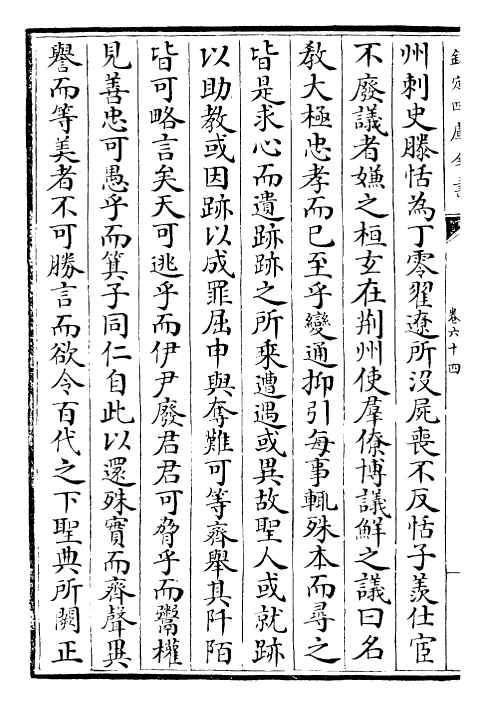 欽定四庫全書
卷六十四
州刺史滕恬為丁零翟遼所沒屍喪不反恬子羨仕宦
不廢議者嫌之桓玄在荆州使羣僚博議鮮之議曰名
教大極忠孝而已至乎變通抑引每事輒殊本而尋之
皆是求心而遺跡跡之所乘遭遇或異故聖人或就跡
以助教或因跡以成罪屈申與奪難可等齊舉其阡陌
皆可略言矣天可逃乎而伊尹廢君君可脅乎而鬻權
見善忠可愚乎而箕子同仁自此以還殊實而齊聲異
譽而等美者不可勝言而欲令百代之下聖典所闕正